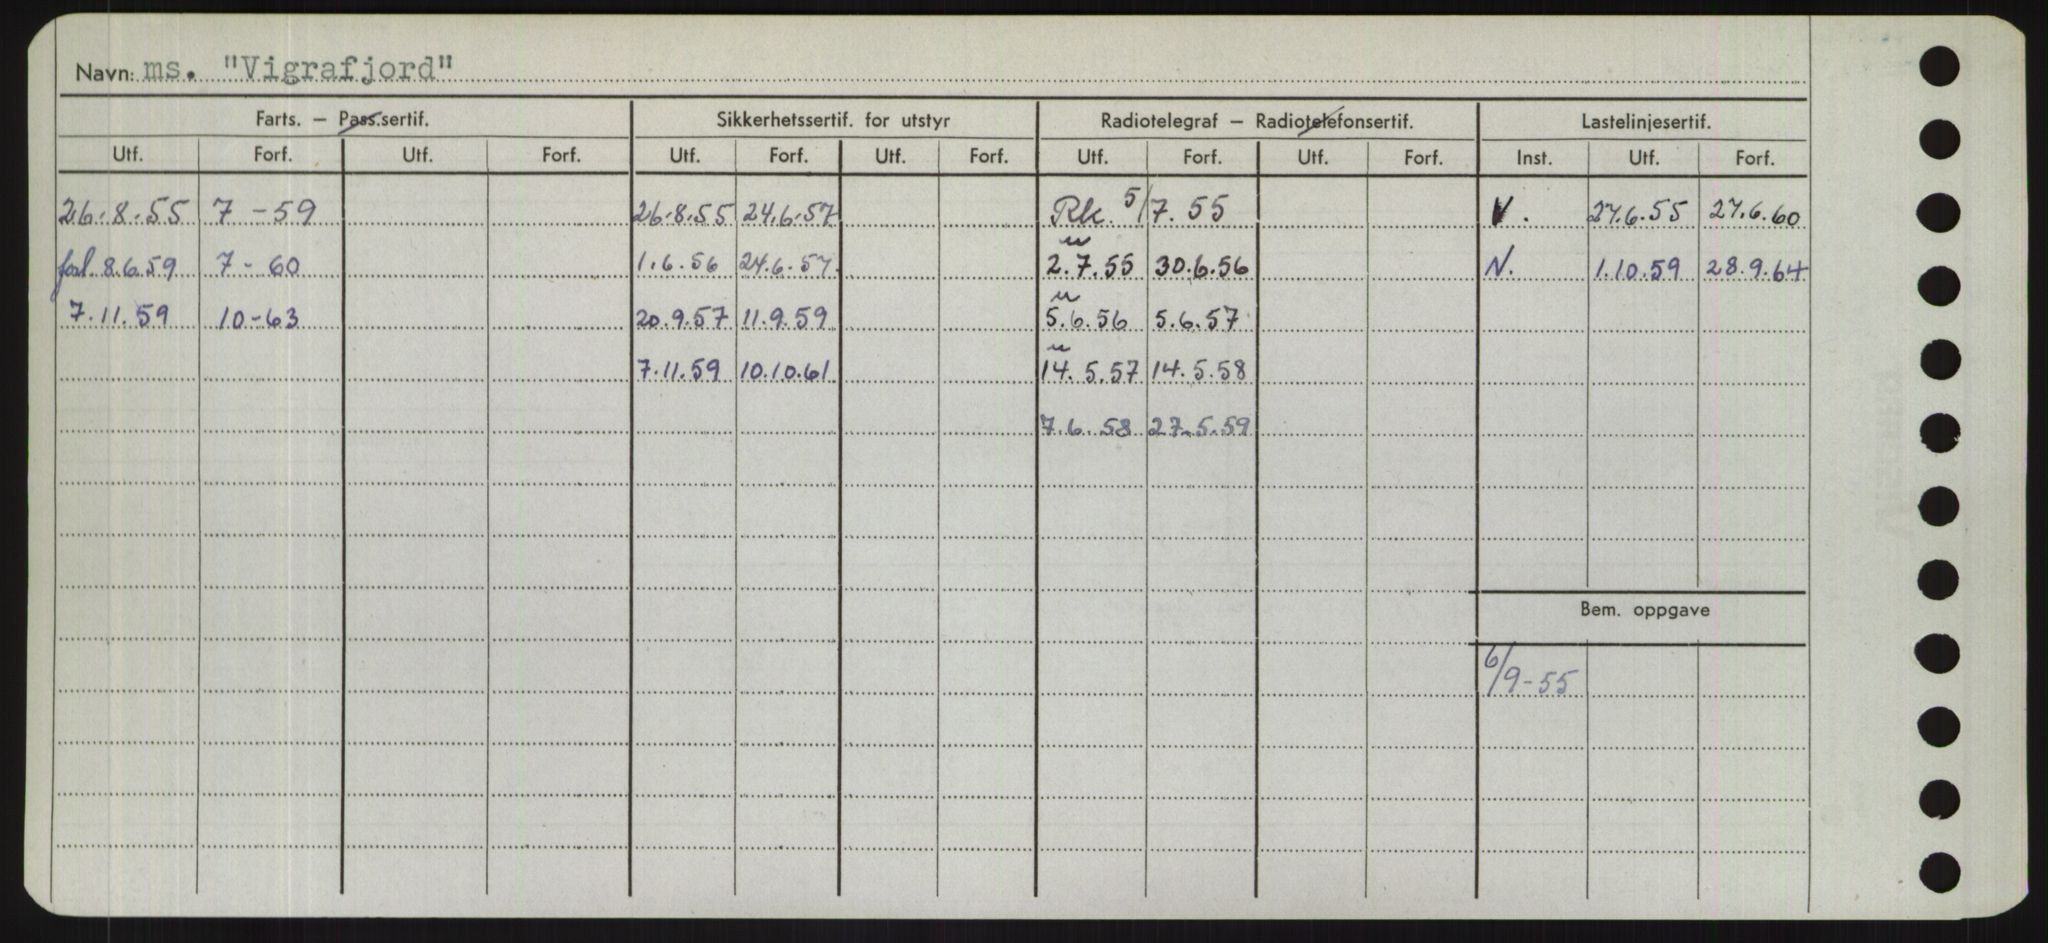 Navn: ms. "Vigrafjord"
Farts. — Pass.sertif. Sikkerhetssertif. for utstyr Radiotelegraf — Radiotelefonsertif. Lastelinjesertif.
Utf. Forf. Utf. Forf. Utf. Forf. Utf. Forf. Utf. Forf. Utf. Forf. Inst. Utf. Forf.
26.8.55 7-59 26.8.55 24.6.57 Rk. 5/7.55 V. 27.6.55 27.6.60
8.6.59 7-60 1.6.56 24.6.57 2.7.55 30.6.56 N. 1.10.59 28.9.64
7.11.59 10-63 20.9.57 11.9.59 5.6.56 5.6.57
7.11.59 10.10.61 14.5.57 14.5.58
7.6.58 27.5.59
Bem. oppgave
6/9-55